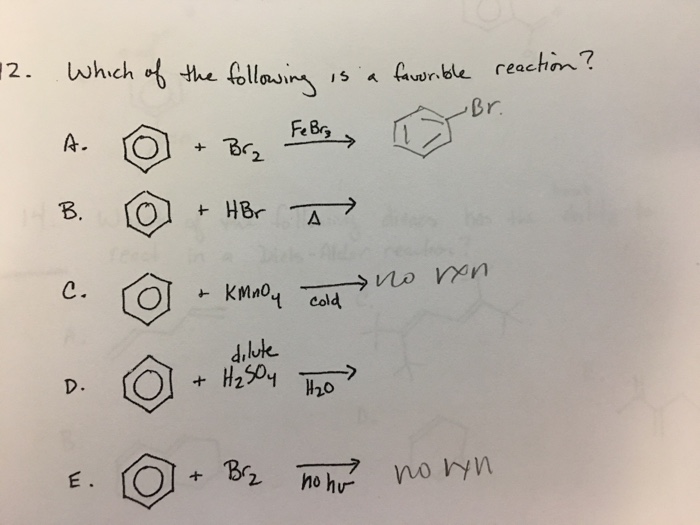 12. Which of the following is a favorible reaction?
A. + Br₂ FeBr₃ Br.
B. + HBr Δ
C. + KMnO₄ cold no rxn
D. + dilute H₂SO₄ H₂O
E. + Br₂ no hν no rxn